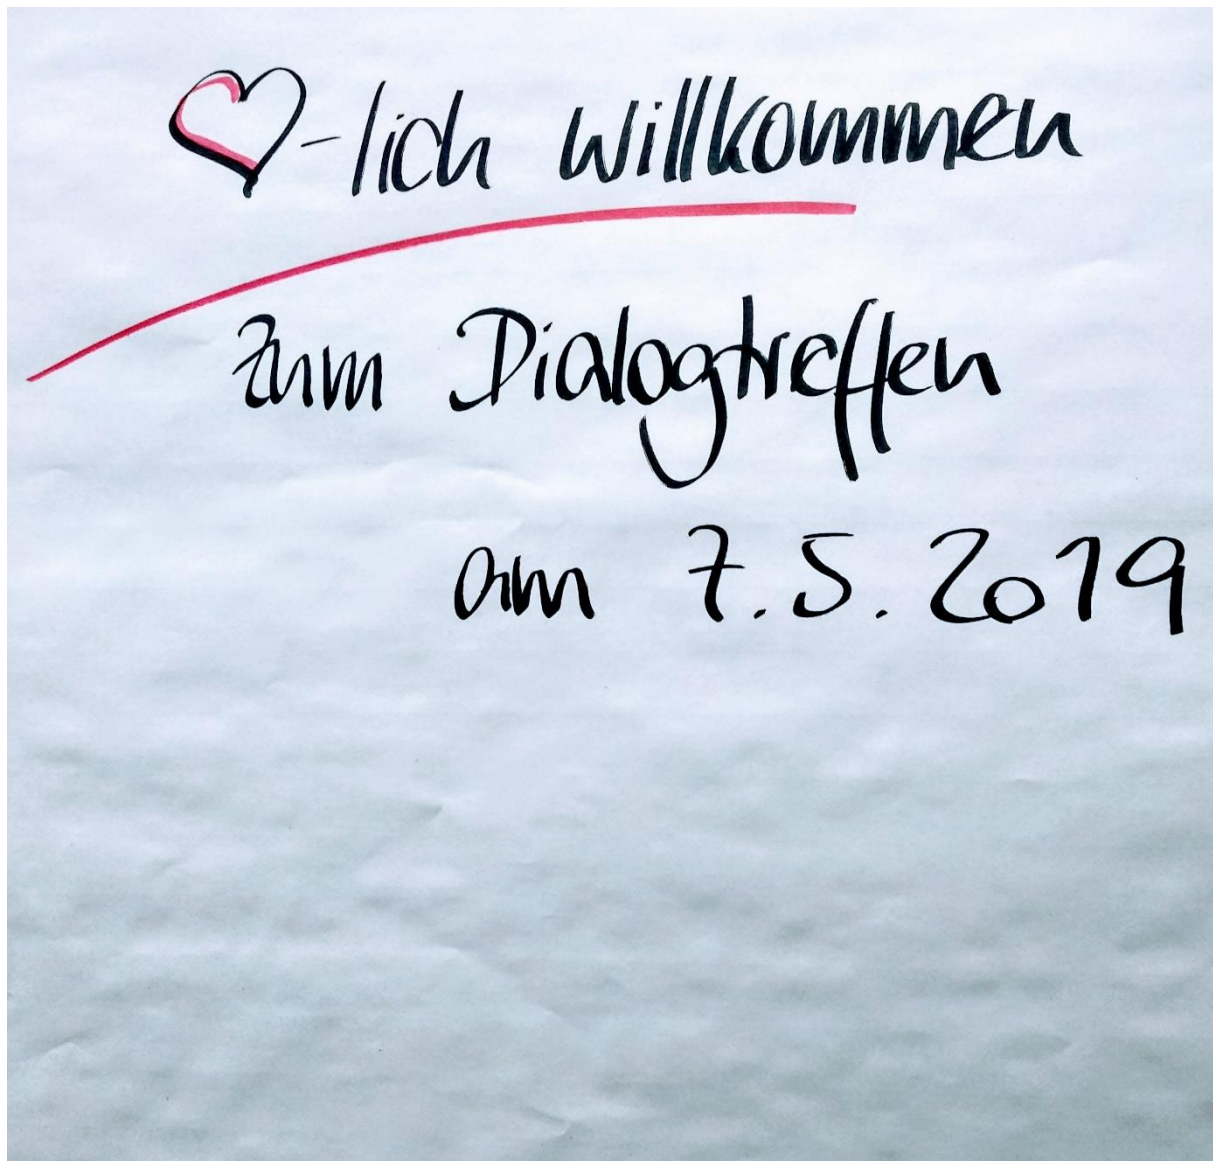 ♡-lich willkommen
zum Dialogtreffen
am 7.5.2019